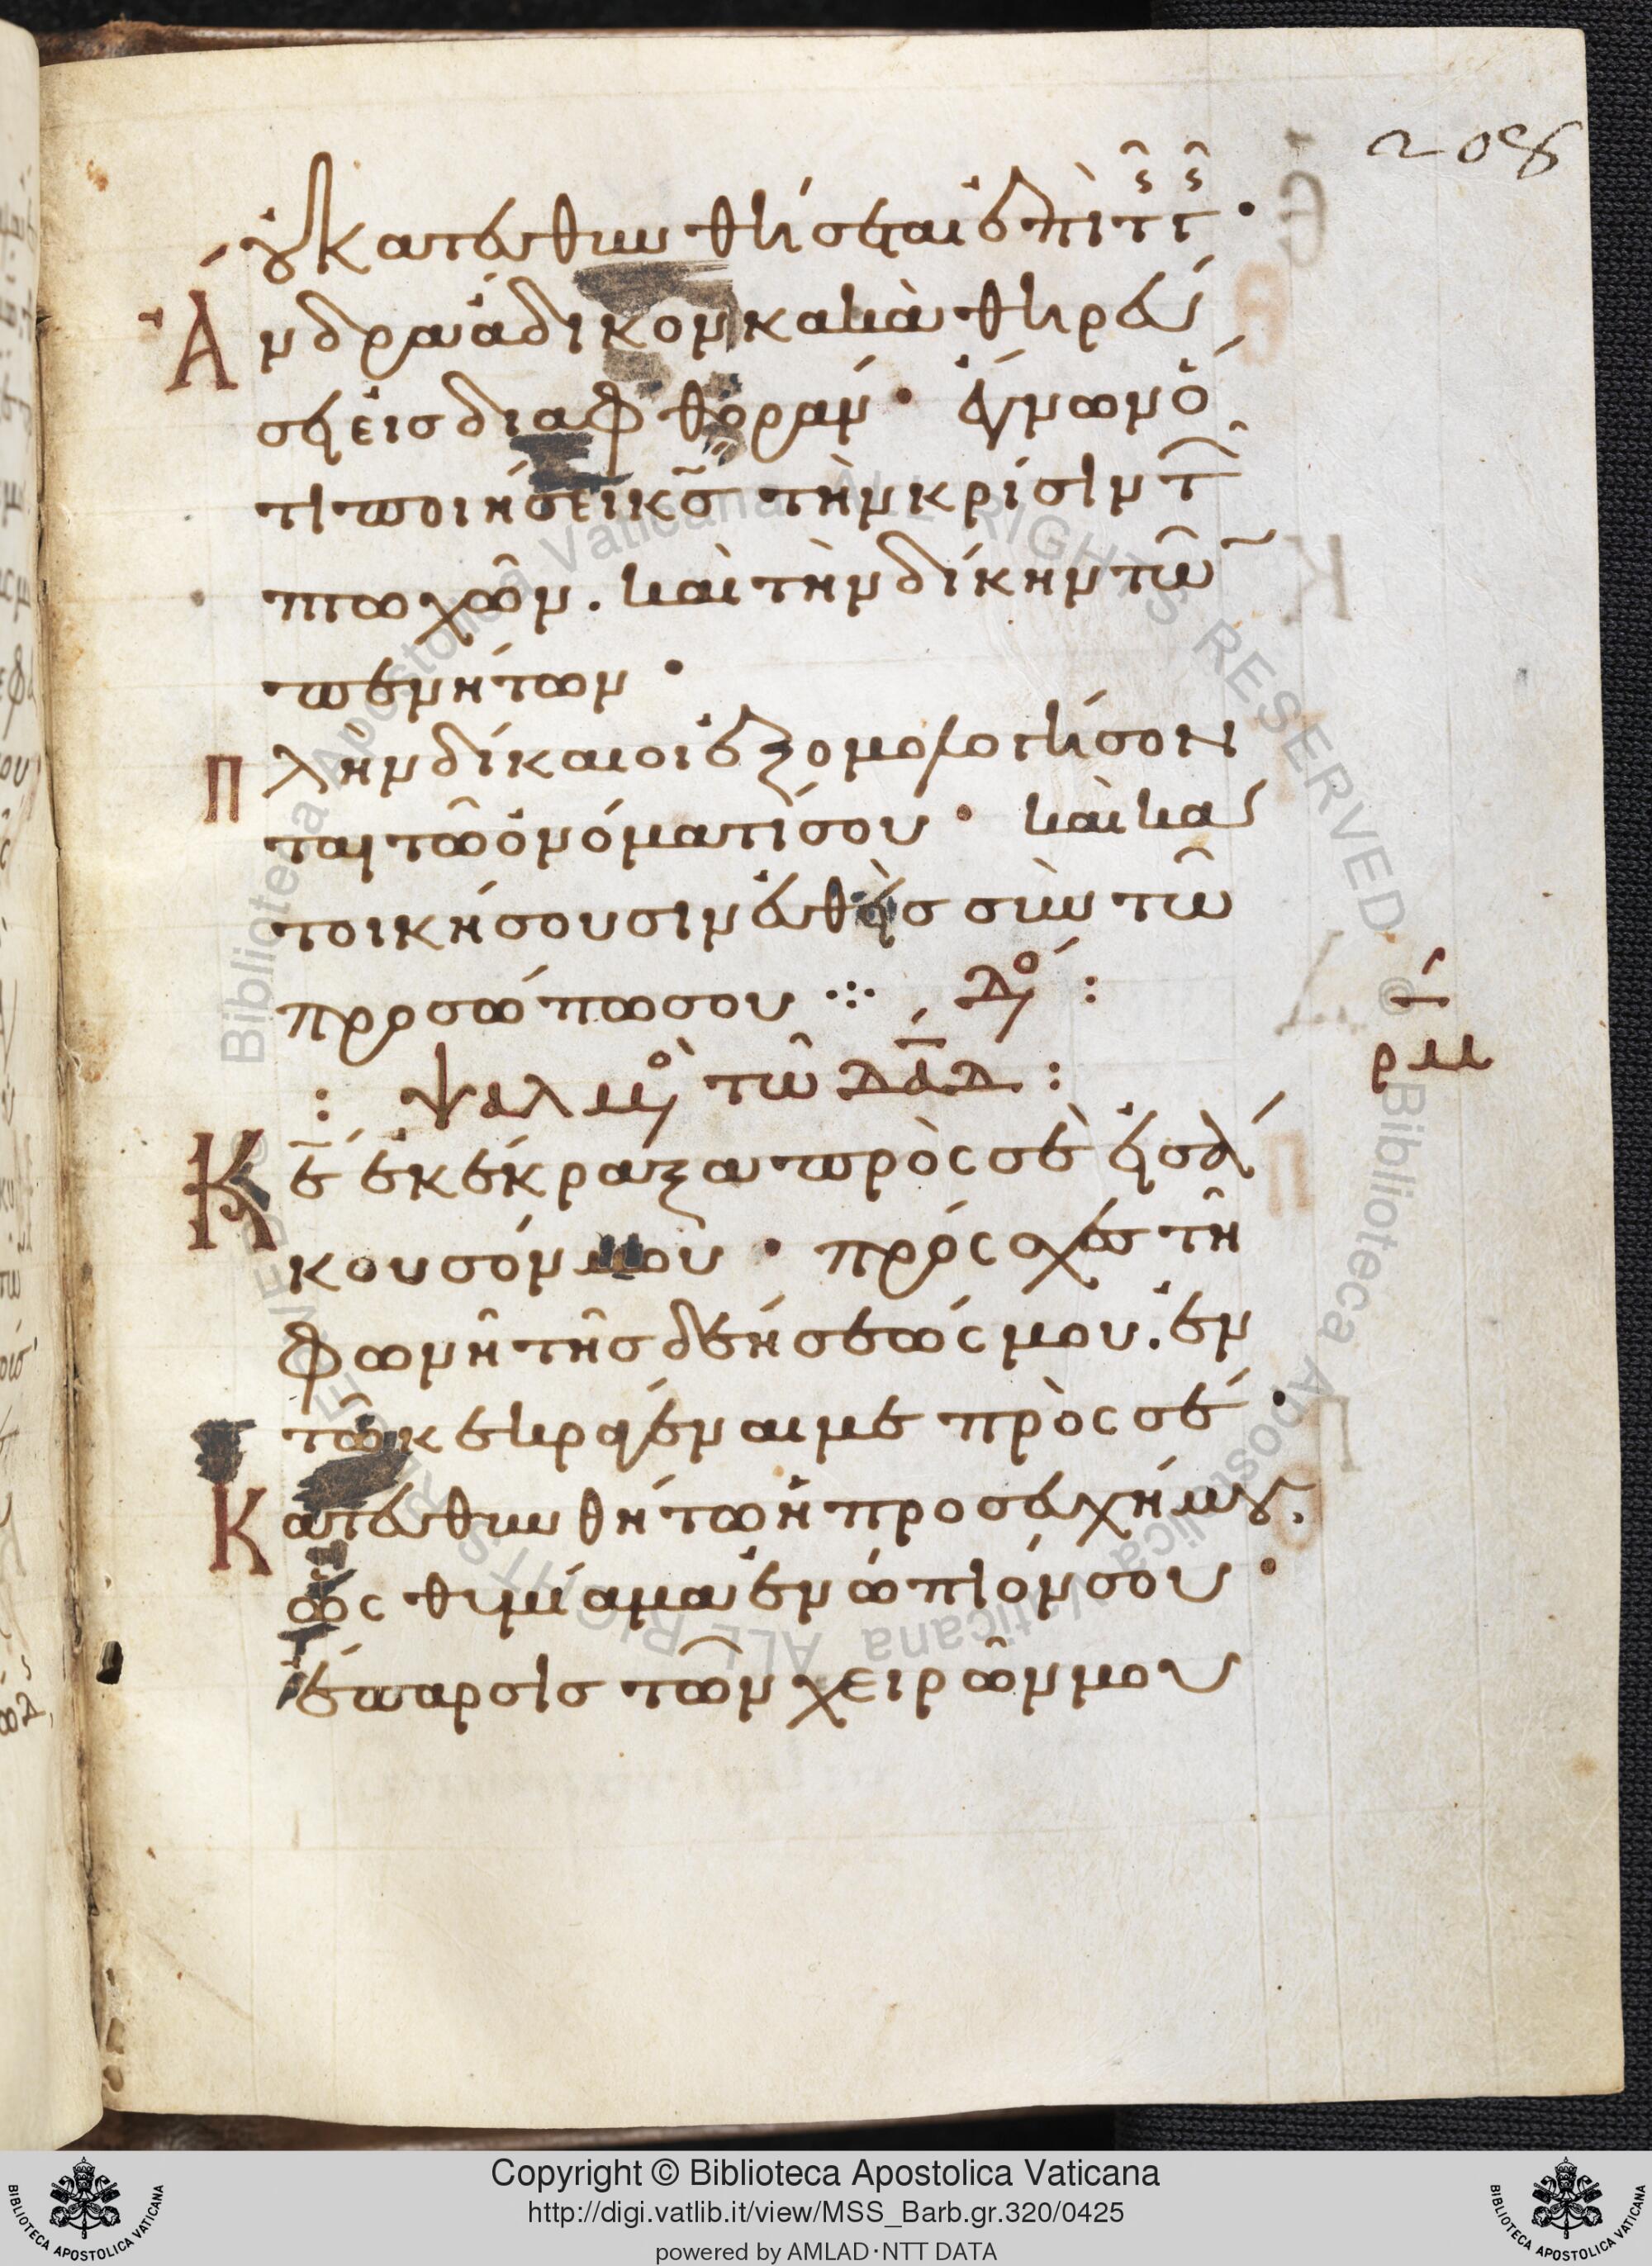 208
οὐ κατευθυνθήσεται ἐπὶ τῆς γῆς·
Ἄνδρα ἄδικον κακὰ θηρεύ
σει εἰς διαφθοράν· ἔγνων ὅ
τι ποιήσει κ̅ς̅ τὴν κρίσιν τῶ
πτωχῶν. καὶ τὴν δίκην τῶ
πενήτων·
Πλὴν δίκαιοι ἐξομολογήσον
ται τῶ ὀνόματί σου· καὶ κα
τοικήσουσιν εὐθεῖς σὺν τῶ
προσώπω σου ⁘
: ψαλμὸς τῶ δ̅α̅δ̅ :
ρμ
Κ̅ε̅ ἐκέκραξα πρὸς σὲ εἰσά
κουσόν μου· πρόσχες τῆ
φωνῆ τῆς δεήσεώς μου. ἐν
τῶ κεκραγέναι με πρὸς σέ·
Κατευθυνθήτω ἡ προσευχή μου.
ὡς θυμίαμα ἐνώπιόν σου·
ἔπαρσις τῶν χειρῶν μου
Copyright © Biblioteca Apostolica Vaticana
http://digi.vatlib.it/view/MSS_Barb.gr.320/0425
powered by AMLAD·NTT DATA
BIBLIOTECA APOSTOLICA VATICANA
BIBLIOTECA APOSTOLICA VATICANA